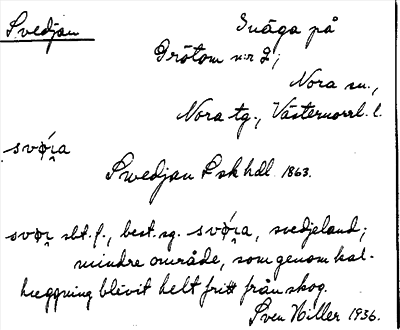 Svedjan
Snäga på
Grötom n:r 2;
Nora sn.,
Nora tg., Västernorrl. l.
Swedjan Lskhdl 1863.
sbt. f., best. sg. svedjeland;
mindre område, som genom kal-
huggning blivit helt fritt från skog.
Sven Hiller 1936.